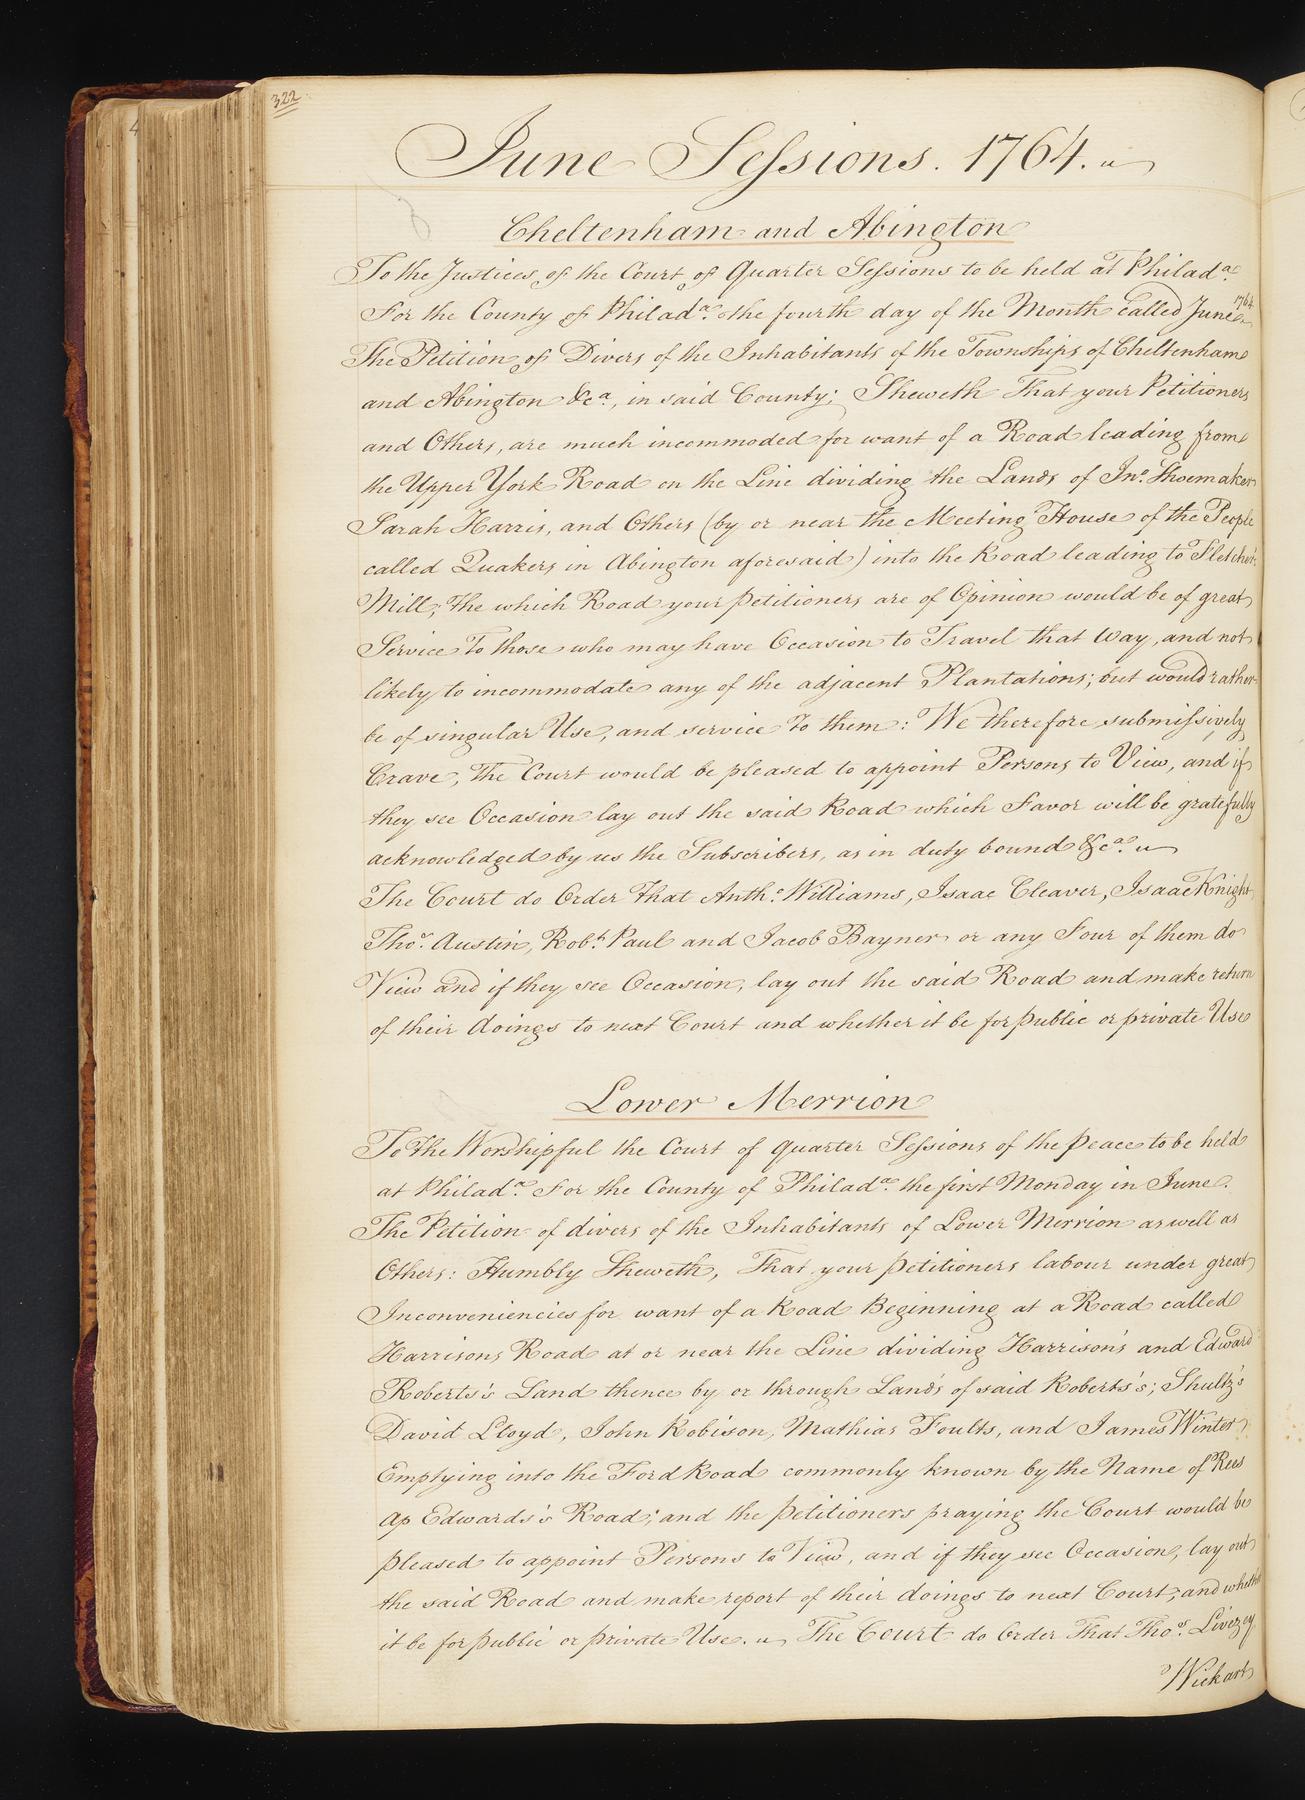 322
June Sessions. 1764.
Cheltenham and Abington
To the Justices of the Court of Quarter Sessions to be held at Philada.
For the County of Philada. the fourth day of the Month called June 1764
The Petition of Divers of the Inhabitants of the Townships of Cheltenham
and Abington &ca., in said County; Sheweth That your Petitioners
and Others, are much incommoded for want of a Road leading from
the Upper York Road on the Line dividing the Lands of Jno. Shoemaker
Sarah Harris, and Others (by or near the Meeting House of the People
called Quakers in Abington aforesaid) into the Road leading to Fletcher's
Mill; The which Road your petitioners are of Opinion would be of great
Service To those who may have Occasion to Travel that way, and not
likely to incommodate any of the adjacent Plantations; but would rather
be of singular Use, and service To them: We therefore submissively
Crave, The Court would be pleased to appoint Persons to View, and if
they see Occasion lay out the said Road which Favor will be gratefully
acknowledged by us the Subscribers, as in duty bound &ca.
The Court do Order That Anthy. Williams, Isaac Cleaver, Isaac Knight
Thos. Austin, Robt. Paul and Jacob Bayner or any Four of them do
View and if they see Occasion, lay out the said Road and make return
of their doings to next Court and whether it be for public or private Use
Lower Merrion
To the Worshipful the Court of Quarter Sessions of the peace to be held
at Philada. For the County of Philada. the first Monday in June.
The Petition of divers of the Inhabitants of Lower Merrion as well as
Others: Humbly Sheweth, That your petitioners labour under great
Inconveniencies for want of a Road Beginning at a Road called
Harrisons Road at or near the Line dividing Harrison's and Edward
Roberts's Land thence by or through Lands of said Roberts's; Shultz's
David Lloyd, John Robison, Mathias Foults, and James Winter
Emptying into the Ford Road commonly known by the Name of Rees
ap Edwards's Road; and the petitioners praying the Court would be
pleased to appoint Persons to View, and if they see Occasion, lay out
the said Road and make report of their doings to next Court, and whether
it be for public or private Use. The Court do Order That Thos. Livezey
Wickart